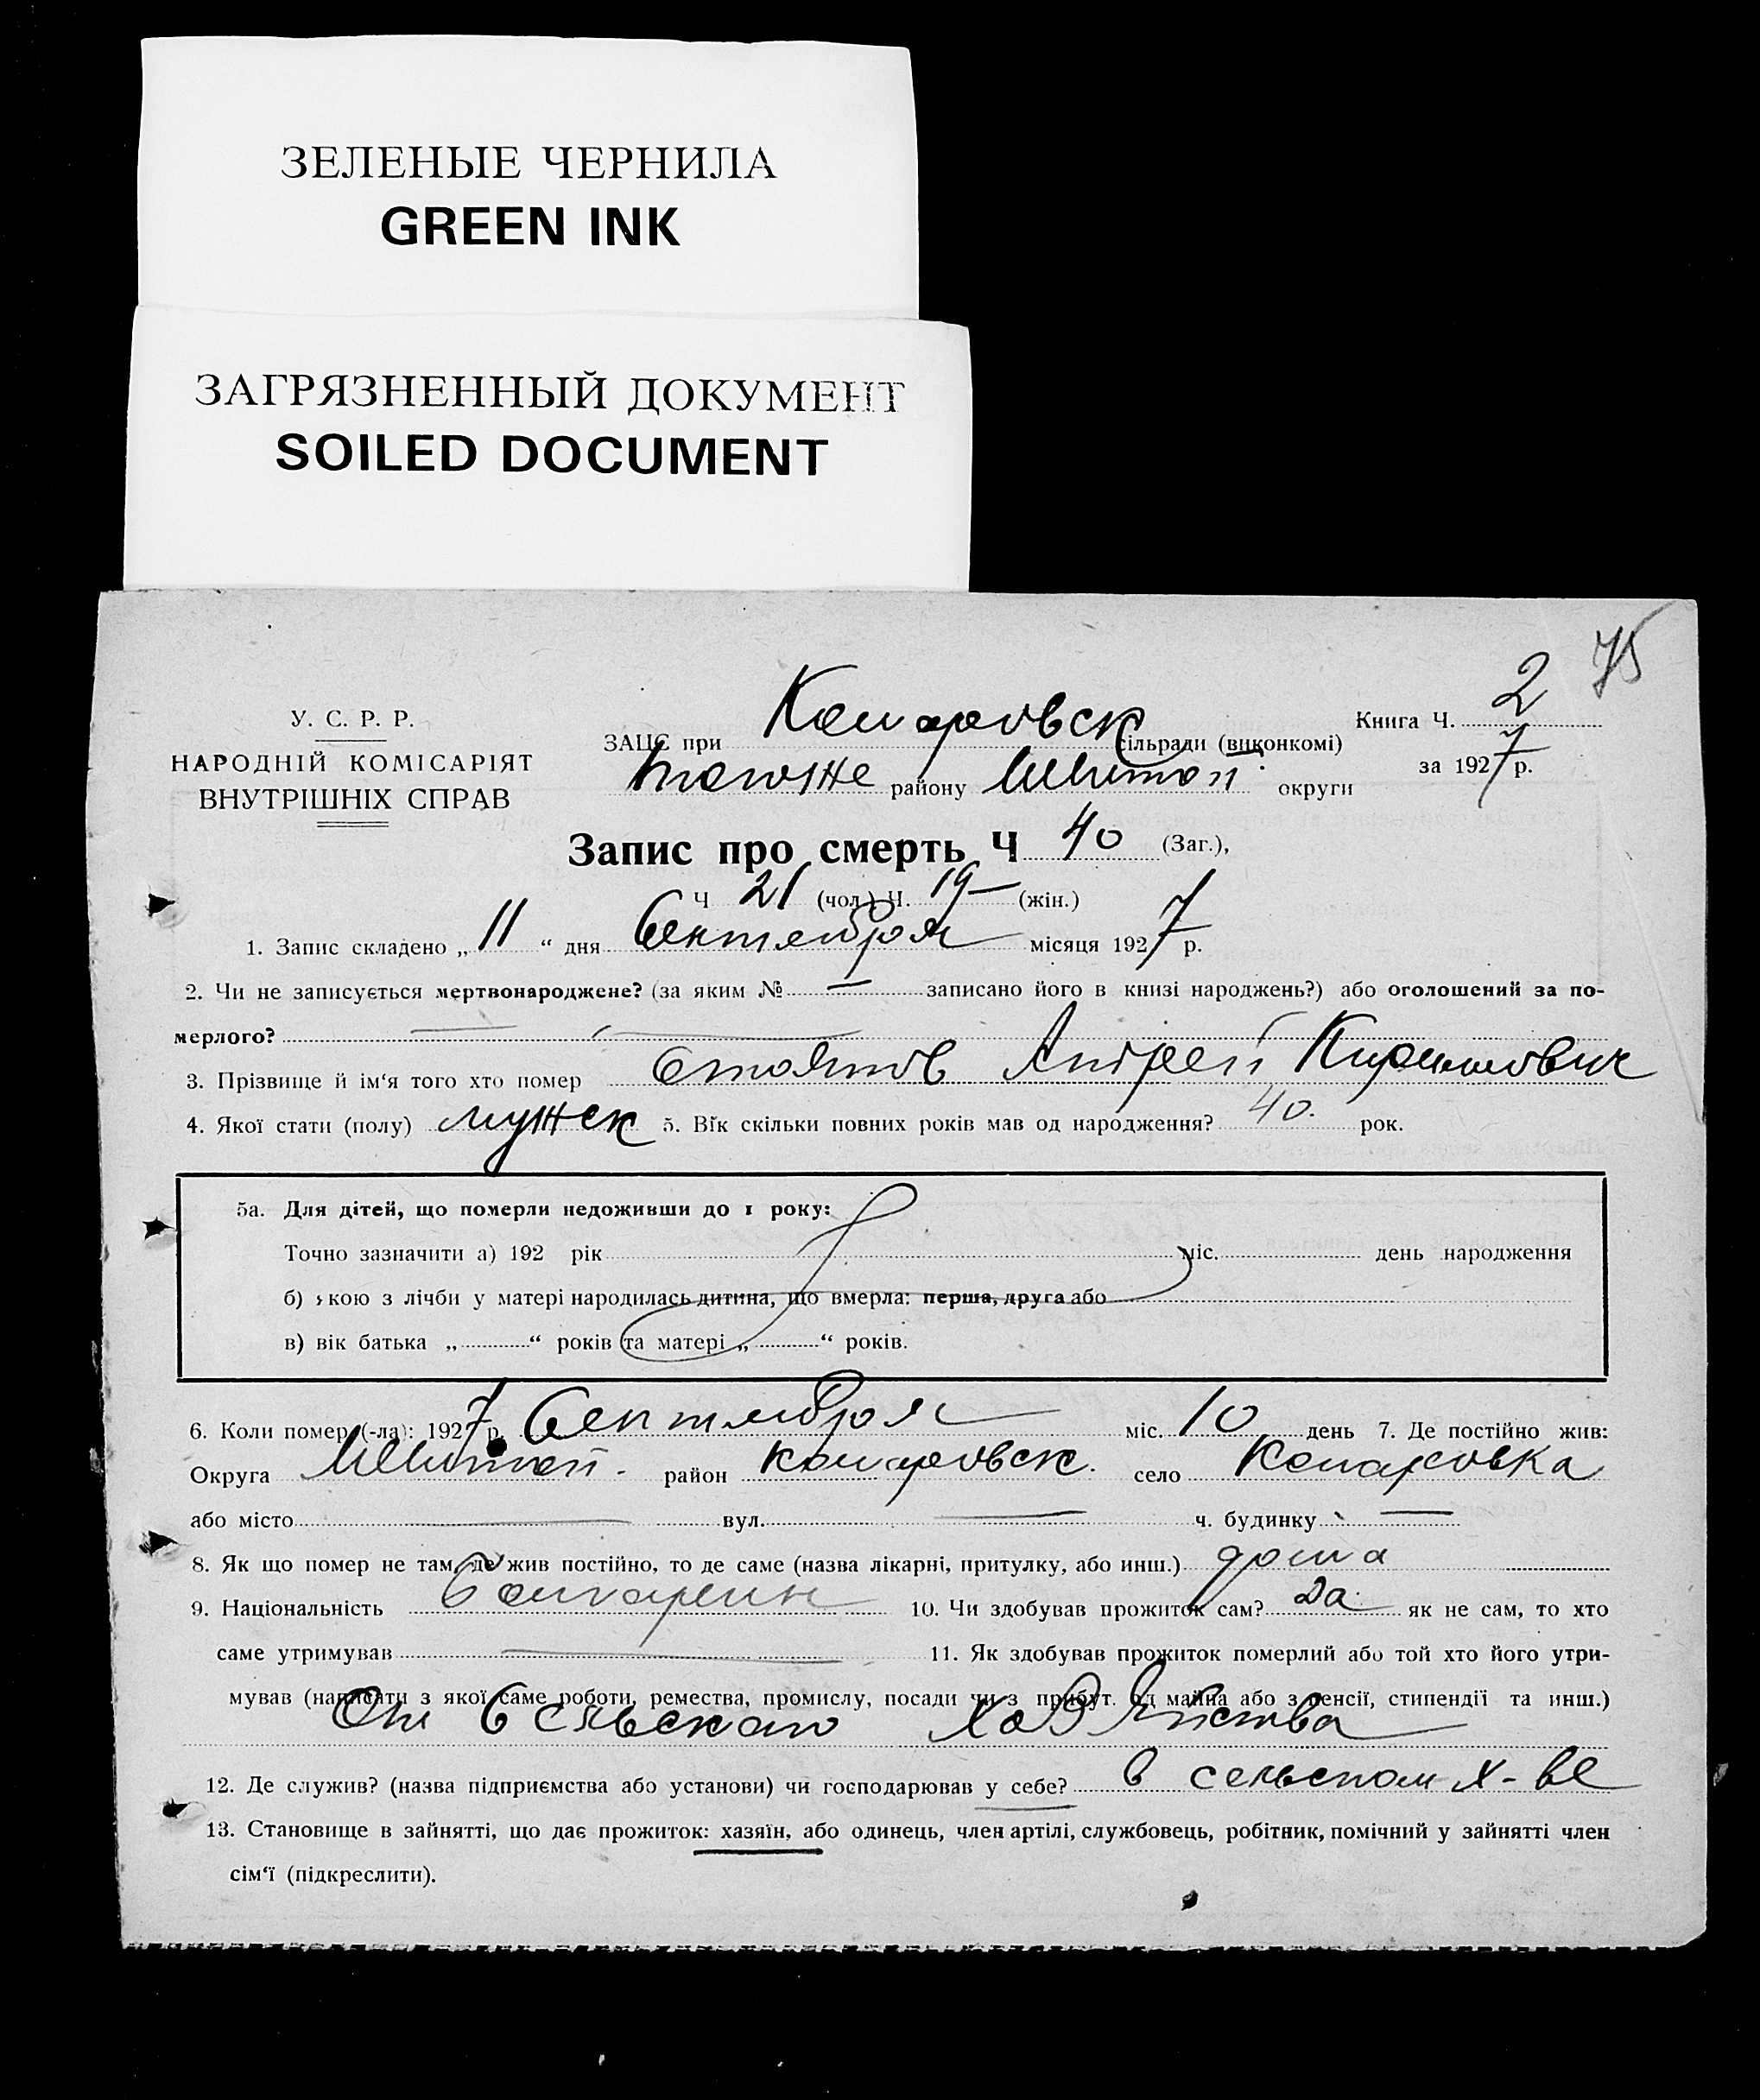 ЗЕЛЕНЫЕ ЧЕРНИЛА
GREEN INK
ЗАГРЯЗНЕННЫЙ ДОКУМЕНТ
SOILED DOCUMENT
75
У. С. Р. Р.
НАРОДНІЙ КОМІСАРІЯТ
ВНУТРІШНІХ СПРАВ
Книга Ч. 2
за 1927 р.
ЗАЦС при Комаровск сільради (виконкомі)
району Мелитоп. округи
Запис про смерть Ч 40 (Заг.),
Ч 21 (чол.) Ч. 19 (жін.)
1. Запис складено „ 11 “ дня Сентября місяця 1927 р.
2. Чи не записується мертвонароджене? (за яким № — записано його в книзі народжень?) або оголошений за по-
мерлого? —
3. Прізвище й ім‘я того хто помер Стоянов Андрей
4. Якої стати (полу) мужск 5. Вік скільки повних років мав од народження? 40. рок.
5а. Для дітей, що померли недоживши до 1 року:
Точно зазначити а) 192 рік міс. день народження
б) якою з лічби у матері народилась дитина, що вмерла: перша, друга або
в) вік батька „ “ років та матері „ “ років.
6. Коли помер (-ла): 1927 р. Сентября міс. 10 день 7. Де постійно жив:
Округа Мелитоп. район комаровск. село Комаровка
або місто — вул. — ч. будинку —
8. Як що помер не там, де жив постійно, то де саме (назва лікарні, притулку, або инш.) дома
9. Національність болгарин 10. Чи здобував прожиток сам? да як не сам, то хто
саме утримував — 11. Як здобував прожиток померлий або той хто його утри-
мував (написати з якої саме роботи, ремества, промислу, посади чи з прибут. од майна або з пенсії, стипендії та инш.)
От Сельскаго Хозяйства
12. Де служив? (назва підприємства або установи) чи господарював у себе? в сельском х-ве
13. Становище в зайнятті, що дає прожиток: хазяїн, або одинець, член артілі, службовець, робітник, помічний у зайнятті член
сім‘ї (підкреслити).